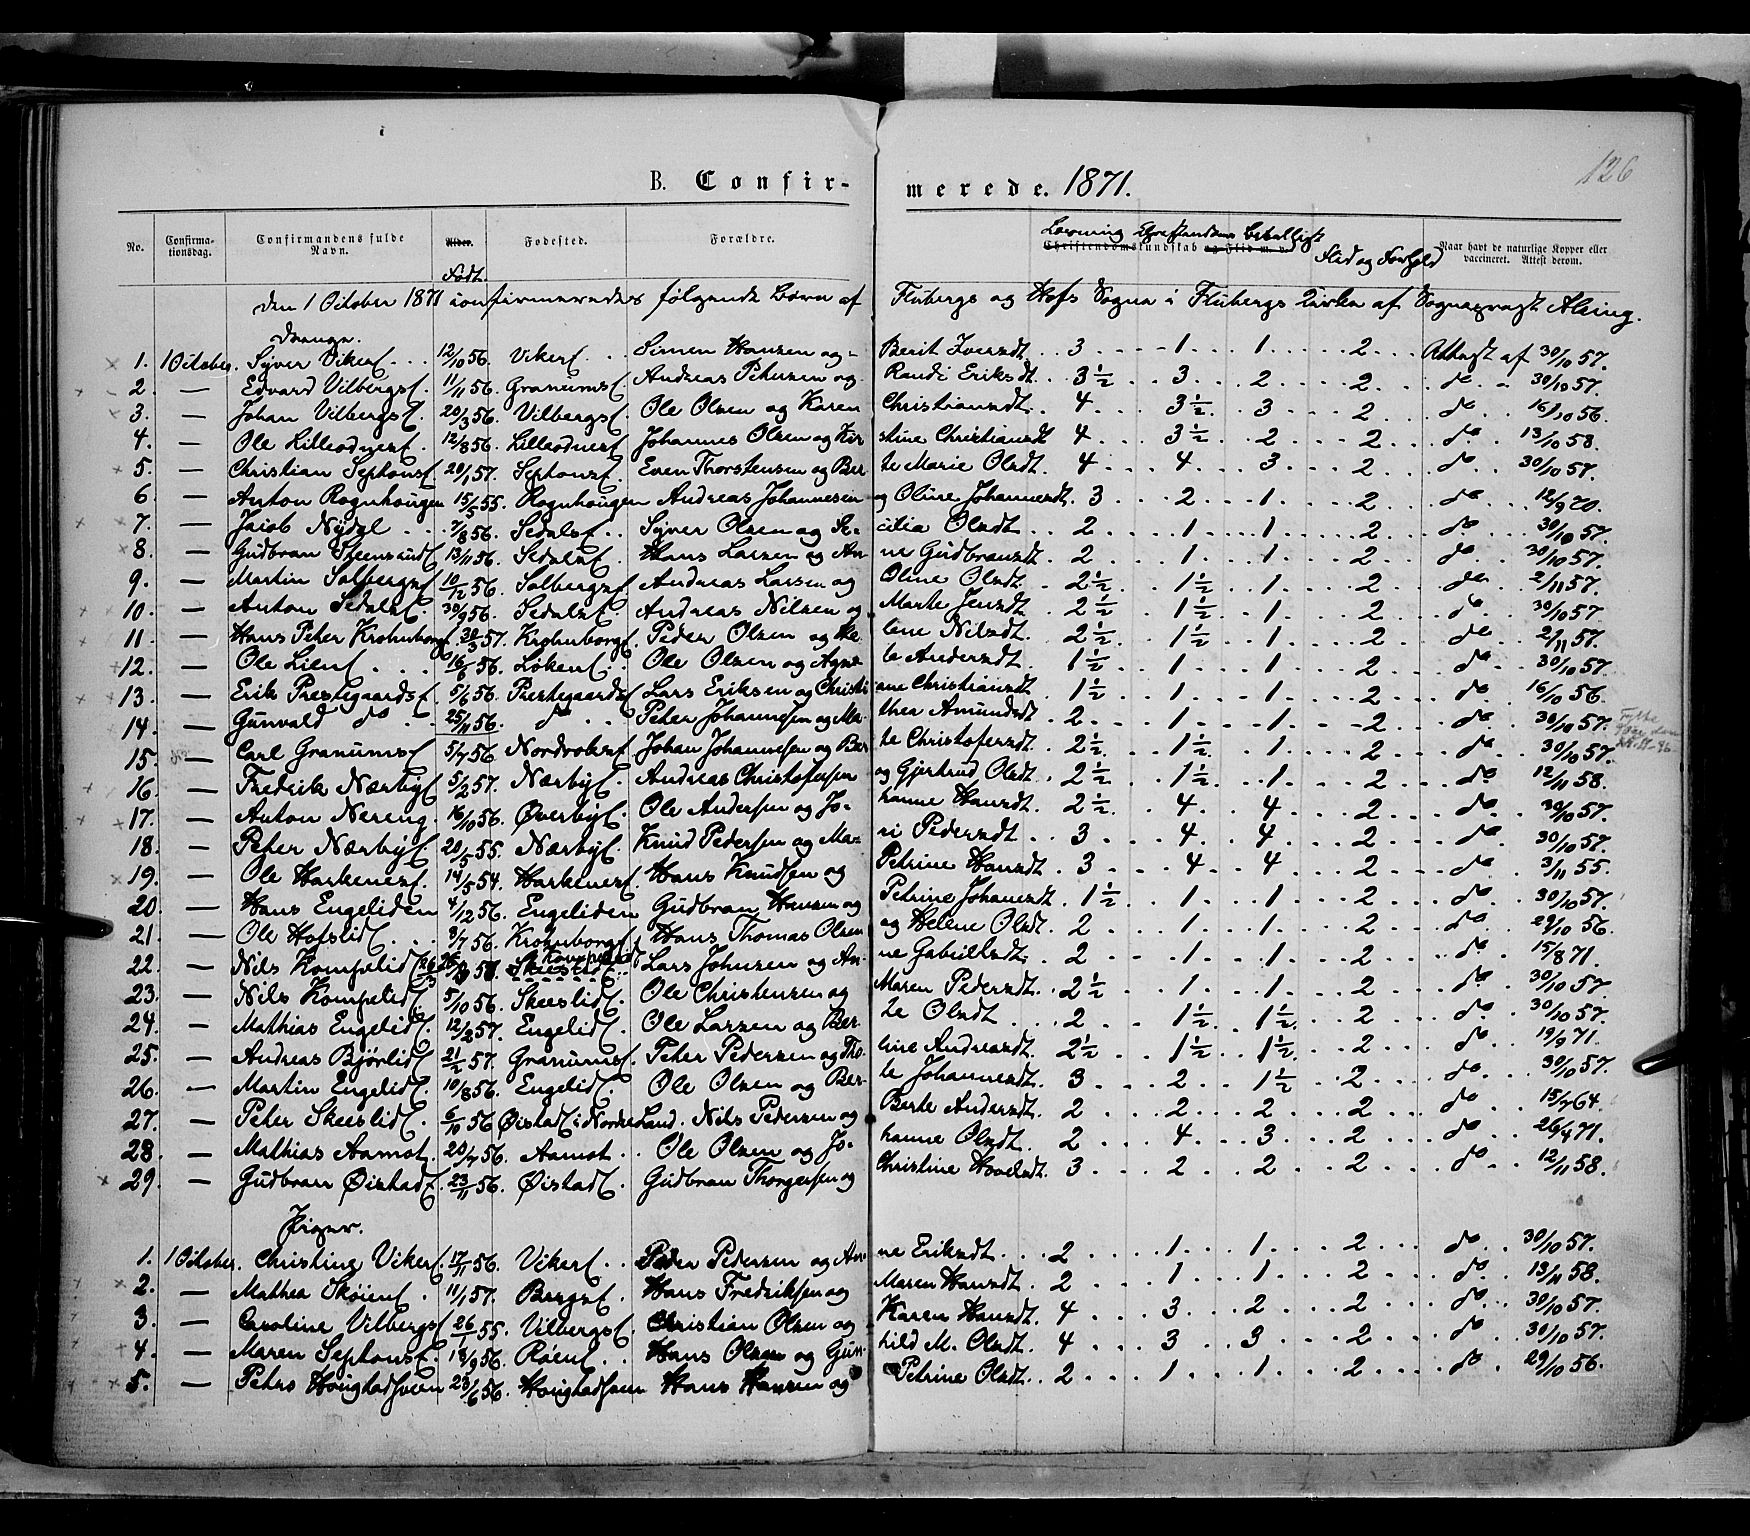 126
B. Confirmerede. 1871.
No. Confirmationsdag. Confirmandens fulde Navn. Alder. Født. Fødested. Forældre. Christendomskundskab og Flid m. v. Flid og Forhold Naar havt de naturlige Kopper eller vaccineret. Attest derom.
Den 1 October 1871 confirmeredes følgende Børn af Flubergs og Hofs Sogne i Flubergs Kirke af Sogneprest Alsing.
Drenge.
1. 1 October. Syver Vikerf. 12/10 56. Vikerf. Simen Hansen og Berit Iversdt. 3 1 1 2 Attest af 30/10 57.
2 — Edvard Vilbergsf. 11/11 56. Granumsf. Andreas Petersen og Randi Eriksdt. 3 1/2 3 2 2 do 30/10 57.
3. — Johan Vilbergsf. 20/3 56. Vilbergsf. Ole Olsen og Karen Christiansdt. 4 3 1/2 3 2 do 16/10 56.
4. — Ole Lilleodnesf. 12/8 56. Lilleodnesf. Johannes Olsen og Kirstine Christiansdt 4 3 1/2 2 2 do 13/10 58.
5. — Christian Sephonsf. 20/1 57. Sephonsf. Even Thorstensen og Berte Marie Olsdt. 4 4 3 2 do 30/10 57.
6. — Anton Rognhougen 15/5 55. Rognhougen Andreas Johannesen og Oline Johannesdt. 3 2 1 2 do 12/9 70.
7. — Jacob Nydal 7/8 56. Sedalsf. Syver Olsen og Secilia Olsdt. 2 1 1 2 do 30/10 57.
8. — Gudbran Steensrudf. 13/11 56. Sedalsf. Hans Larsen og Anne Gudbransdt. 2 1 1 2 do 30/10 57.
9. — Martin Solbergsf. 10/12 56. Solbergsf. Andreas Larsen og Oline Olsdt. 2 1/2 1 1/2 1 2 do 2/11 57.
10. — Anton Sedalsf. 30/9 56. Sedalsf. Andreas Nilsen og Marte Jensdt. 2 1/2 1 1/2 1 2 do 30/10 57.
11 — Hans Peter Krohnborgf. 20/3 57. Krohnborgf. Peder Olsen og Helene Nilsdt. 2 1/2 1 1/2 1 2 do 2/11 57.
12. — Ole Lienf. 16/6 56. Løkenf. Ole Olsen og Agnete Andersdt. 1 1/2 1 1 2 do 30/10 57.
13. — Erik Prestegaardsf. 5/6 56. Prestegaardsf. Lars Eriksen og Christiane Christiansdt. 1 1/2 1 1 2 do 16/10 56.
14. — Gunvald do 25/11 56. do Peter Johannesen og Marthea Amundsdt 2 1 1 2 do 30/10 57.
15. — Carl Granumsf. 5/7 56. Nordvoksf. Johan Johannesen og Berte Christofersdt. 2 1/2 1 1/2 1 2 do 30/10 57.
16. — Fredrik Nærbyf. 5/2 57. Nærbyf. Andreas Christofersen og Gjertrud Olsdt. 2 1/2 1 1/2 1 2 do 12/11 58.
17. — Anton Nereng. 16/10 56. Øverbyf. Ole Andersen og Johanne Hansdt. 2 1/2 4 4 2 do 30/10 57.
18. — Peter Nærbyf. 20/5 55. Nærbyf. Knud Pedersen og Mari Pedersdt. 3 4 4 2 do 30/10 57.
19. — Ole Harkenesf. 14/5 54. Harkenesf. Hans Knudsen og Petrine Hansdt. 3 4 4 2 do 3/11 55.
20. — Hans Engeliden 4/12 56. Engeliden Gudbran Hansen og Petrine Johansdt. 1 1/2 1 1 2 do 30/10 57.
21. — Ole Hofslidf. 8/7 56. Krohnborgf. Hans Thomas Olsen og Helene Olsdt. 2 1 1 2 do 29/10 56.
22. — Nils Kompelidf. Kompelidf. Lars Johnsen og Anne Gabrielsdt. 2 1 1 2 do 15/8 71.
23. — Nils Kompelidf. 5/10 56. Skeeslidf. Ole Christensen og Maren Pedersdt. 2 1/2 1 1 2 do 30/10 57.
24. — Mathias Engelidf. 12/2 57. Engelidf. Ole Larsen og Berte Olsdt. 2 1 1/2 1 1/2 2 do 30/10 57.
25. — Andreas Bjørlidf. 21/2 57. Granumsf. Peter Pedersen og Thorine Andreasdt. 2 1/2 1 1/2 1 1/2 2 do 19/9 71.
26. — Martin Engelidf. 10/8 56. Engelidf. Ole Olsen og Berte Johannesdt. 3 2 1 1/2 2 do 30/10 57.
27. — Peter Skeeslidf. 6/10 56 Øistadf. i Nordre Land. Nils Pedersen og Berte Andersdt. 2 2 2 2 do 15/7 64.
28. — Mathias Aamot. 20/7 56. Aamot. Ole Olsen og Johanne Olsdt. 2 4 3 2 do 26/4 71.
29. — Gudbran Øistadf. 23/11 56. Øistadf. Gudbran Thorgersen og Christine Hovelsdt. 3 2 2 2 do 12/11 58.
Piger.
1. 1 October. Christine Vikerf. 17/11 56. Vikerf. Peder Pedersen og Anne Eriksdt. 2 1 1 2 do 30/10 57.
2. — Mathea Skøienf. 11/1 57. Bergsf. Hans Fredriksen og Maren Hansdt. 2 1 1 2 do 13/11 58.
3. — Caroline Vilbergsf. 26/1 55. Vilbergsf. Christian Olsen og Karen Hansdt. 4 3 2 2 do 30/10 57.
4. — Maren Sephonsf. 18/9 56. Røenf. Hans Olsen og Gunhild M. Olsdt. 4 3 3 2 do 30/10 57.
5. — Petra Hougstadsveen 23/6 56. Hougstadsveen Hans Hansen og Petrine Olsdt. 2 1 1 2 do 29/10 56.